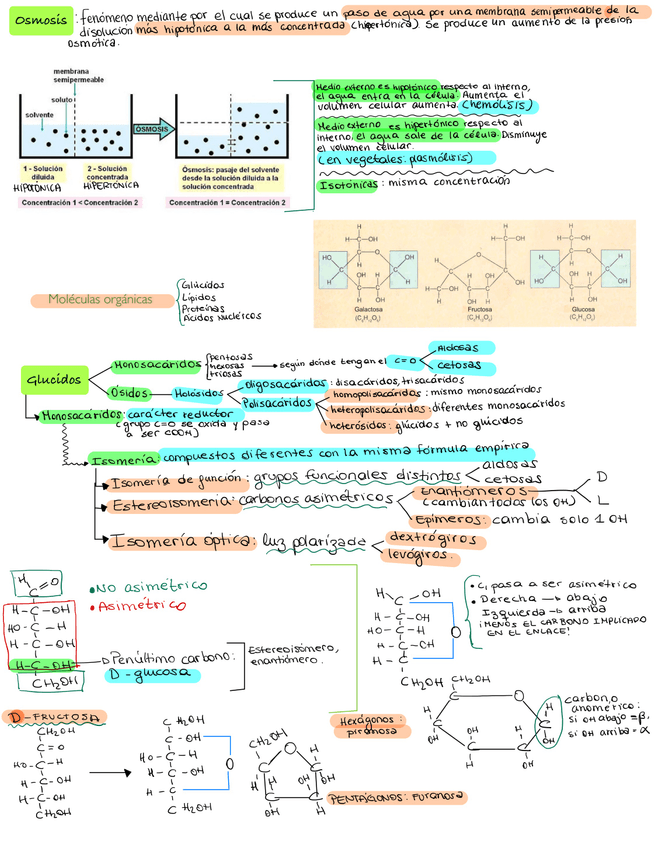 Osmosis: fenómeno mediante por el cual se produce un paso de agua por una membrana semipermeable de la
disolución más hipotónica a la más concentrada (hipertónica). Se produce un aumento de la presión
osmótica.
membrana
semipermeable
soluto
solvente
ÓSMOSIS
1 - Solución
diluida
2 - Solución
concentrada
HIPOTÓNICA
HIPERTÓNICA
Ósmosis: pasaje del solvente
desde la solución diluida a la
solución concentrada
Concentración 1 < Concentración 2
Concentración 1 = Concentración 2
Medio externo es hipotónico respecto al interno,
el agua entra en la célula. Aumenta el
volumen celular aumenta. (hemólisis)
Medio externo es hipertónico respecto al
interno, el agua sale de la célula. Disminuye
el volumen celular.
(en vegetales: plasmólisis)
Isotónicas: misma concentración
Galactosa
(C₆H₁₂O₆)
Fructosa
(C₆H₁₂O₆)
Glucosa
(C₆H₁₂O₆)
Moléculas orgánicas
Glúcidos
Lípidos
Proteínas
Ácidos Nucleicos
Glúcidos
Monosacáridos
pentosas
hexosas
triosas
según donde tengan el C=O
Aldosas
cetosas
Ósidos
Holósidos
Oligosacáridos: disacáridos, trisacáridos
Polisacáridos
homopolisacáridos: mismo monosacáridos
heteropolisacáridos: diferentes monosacáridos
heterósidos: glúcidos + no glúcidos
Monosacáridos: carácter reductor
(grupo C=O se oxida y pasa
a ser COOH)
Isomería: compuestos diferentes con la misma fórmula empírica
Isomería de función: grupos funcionales distintos
aldosas
cetosas
Estereoisomería: carbonos asimétricos
Enantiómeros
(cambian todos los OH)
D
L
Epímeros: cambia solo 1 OH
Isomería óptica: luz polarizada
dextrógiros
levógiros.
H
C=O
H-C-OH
HO-C-H
H-C-OH
H-C-OH
CH₂OH
No asimétrico
Asimétrico
Penúltimo carbono:
D-glucosa
Estereoisómero,
enantiómero.
H C -OH
H-C-OH
HO-C-H
H-C-OH
H-C
O
CH₂OH
C₁ pasa a ser asimétrico
Derecha → abajo
Izquierda → arriba
¡MENOS EL CARBONO IMPLICADO
EN EL ENLACE!
Hexágonos:
piranosa
CH₂OH
carbono
anomérico:
si OH abajo = β,
si OH arriba = α
D-FRUCTOSA
CH₂OH
C=O
HO-C-H
H-C-OH
H-C-OH
CH₂OH
CH₂OH
C-OH
HO-C-H
H-C-OH
H-C
O
CH₂OH
CH₂OH
PENTÁGONOS: Furanosa